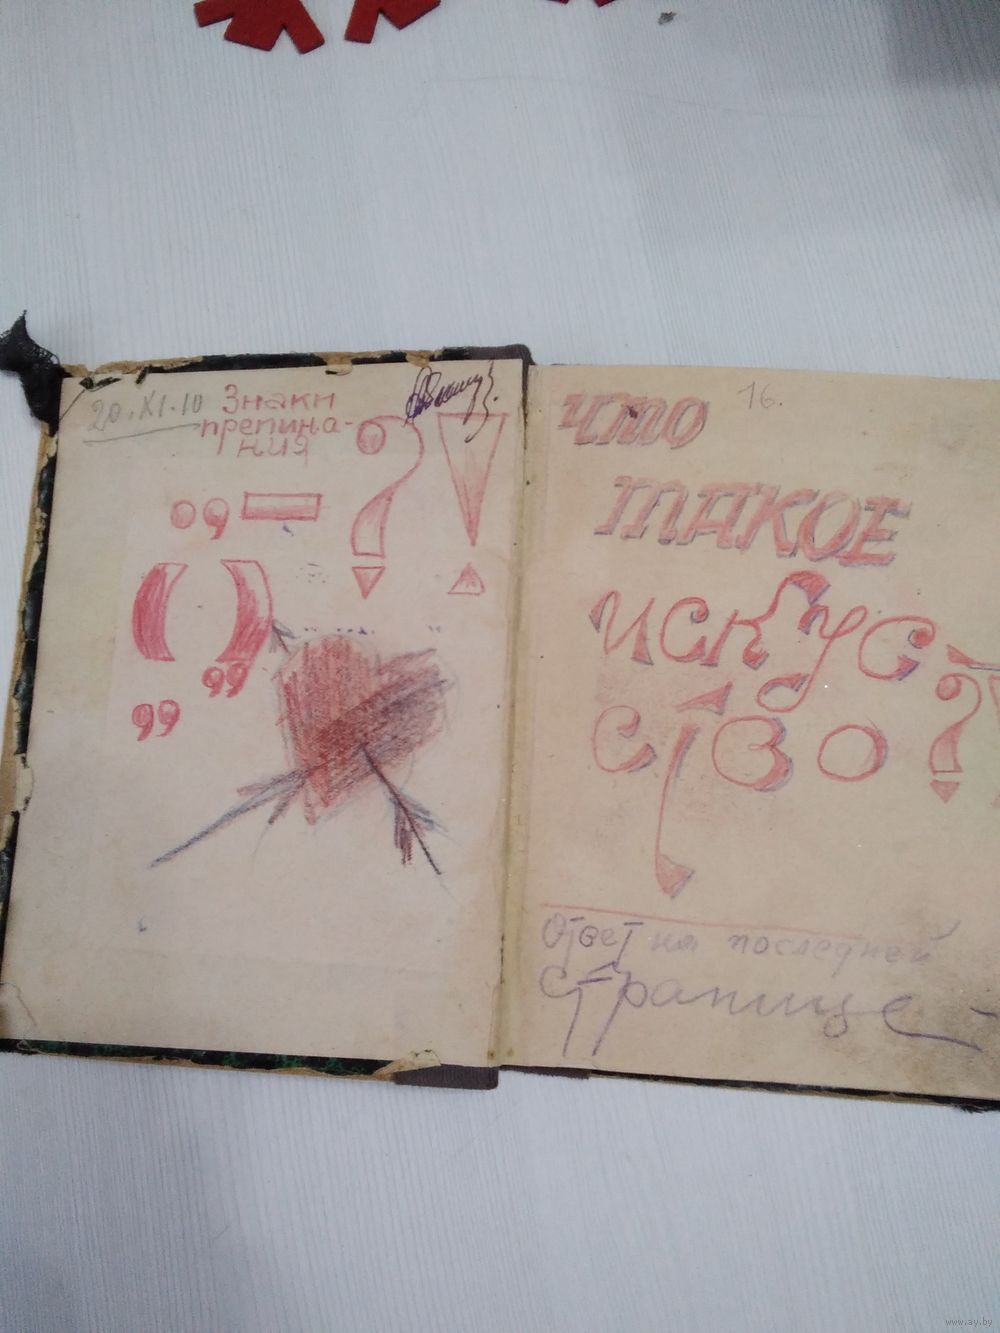 20.XI.10
Знаки
препина-
ния
? !
., —
( )
„
„
16.
что
такое
искус-
ство?
Ответ на последней
странице
www.ay.by